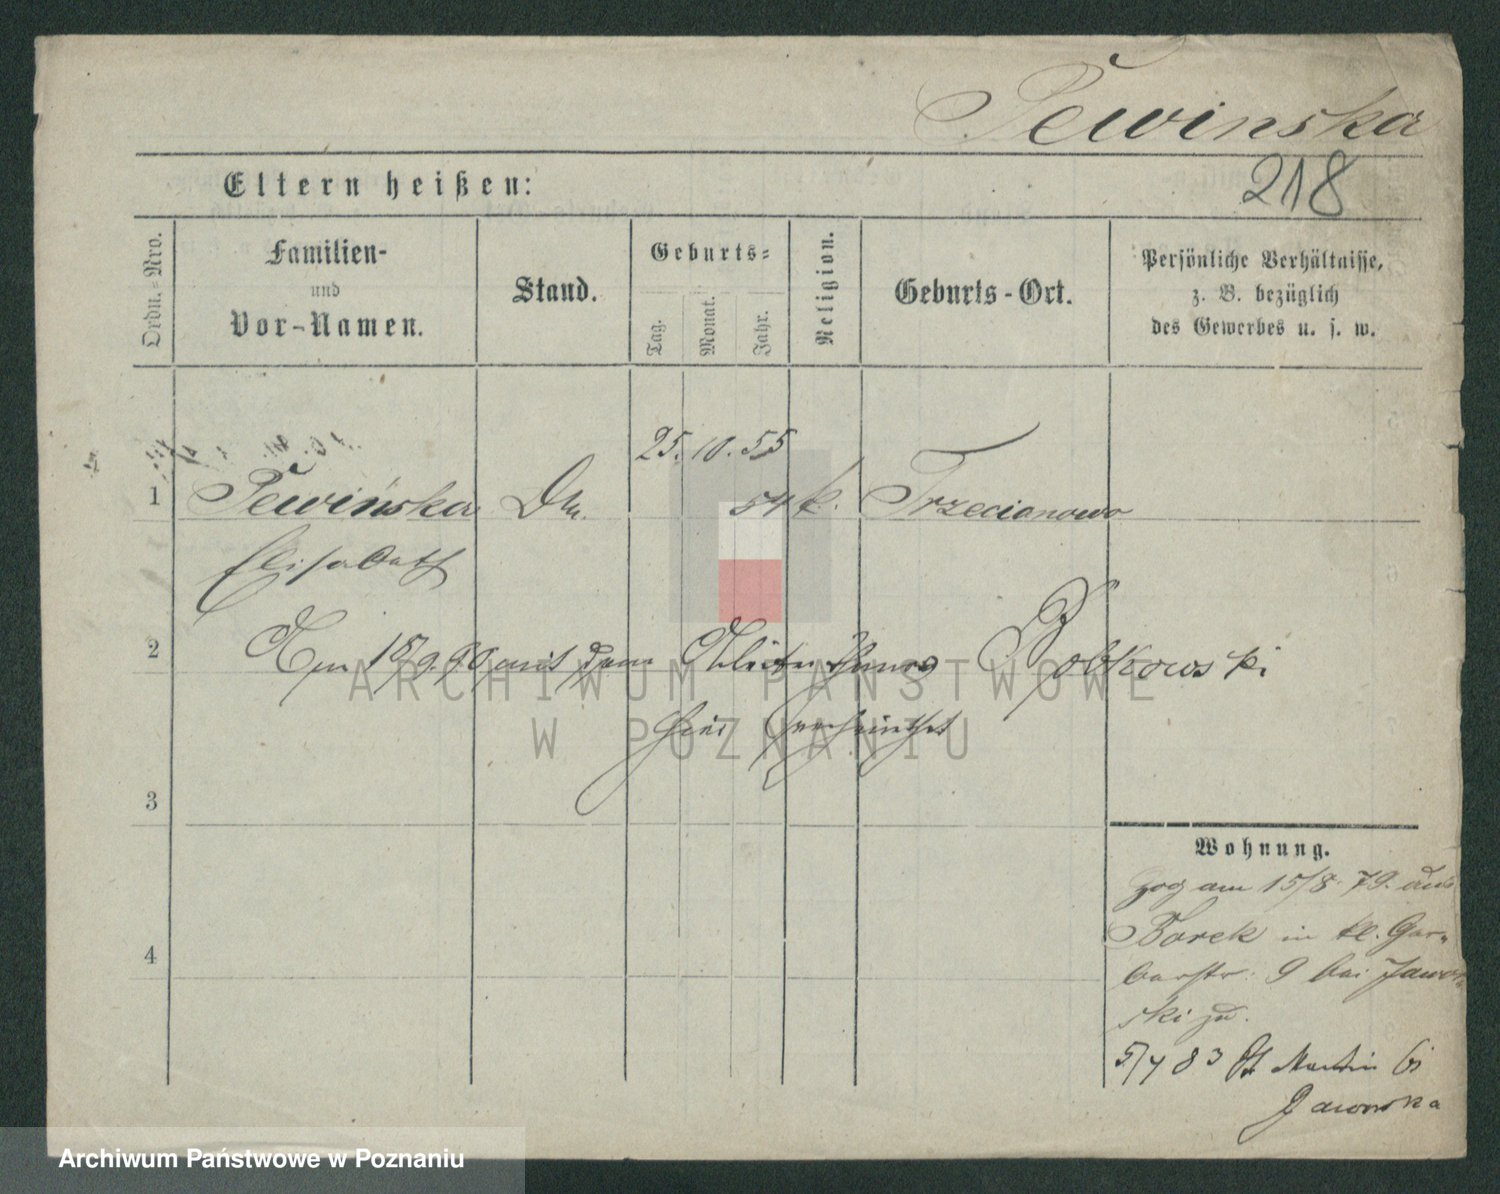 Pewinska
218
Eltern heißen:
Ordn.-Nro.
Familien-
und
Vor-Namen.
Stand.
Geburts-
Tag.
Monat.
Jahr.
Religion.
Geburts-Ort.
Persönliche Verhältnisse,
z. B. bezüglich
des Gewerbes u. s. w.
25. 10. 55
1 Pewińska 54 k. Trzecianowo
Elisabeth
2 Am 15/9 90 mit dem Bobkowski
hier
3
Wohnung.
zog am 15/8. 79. aus
Borek in kl. Gar-
berstr. 9 bei Jawor-
ski zu.
4
5/4 83 St Martin 61
Jaworska
ARCHIWUM PAŃSTWOWE
W POZNANIU
Archiwum Państwowe w Poznaniu